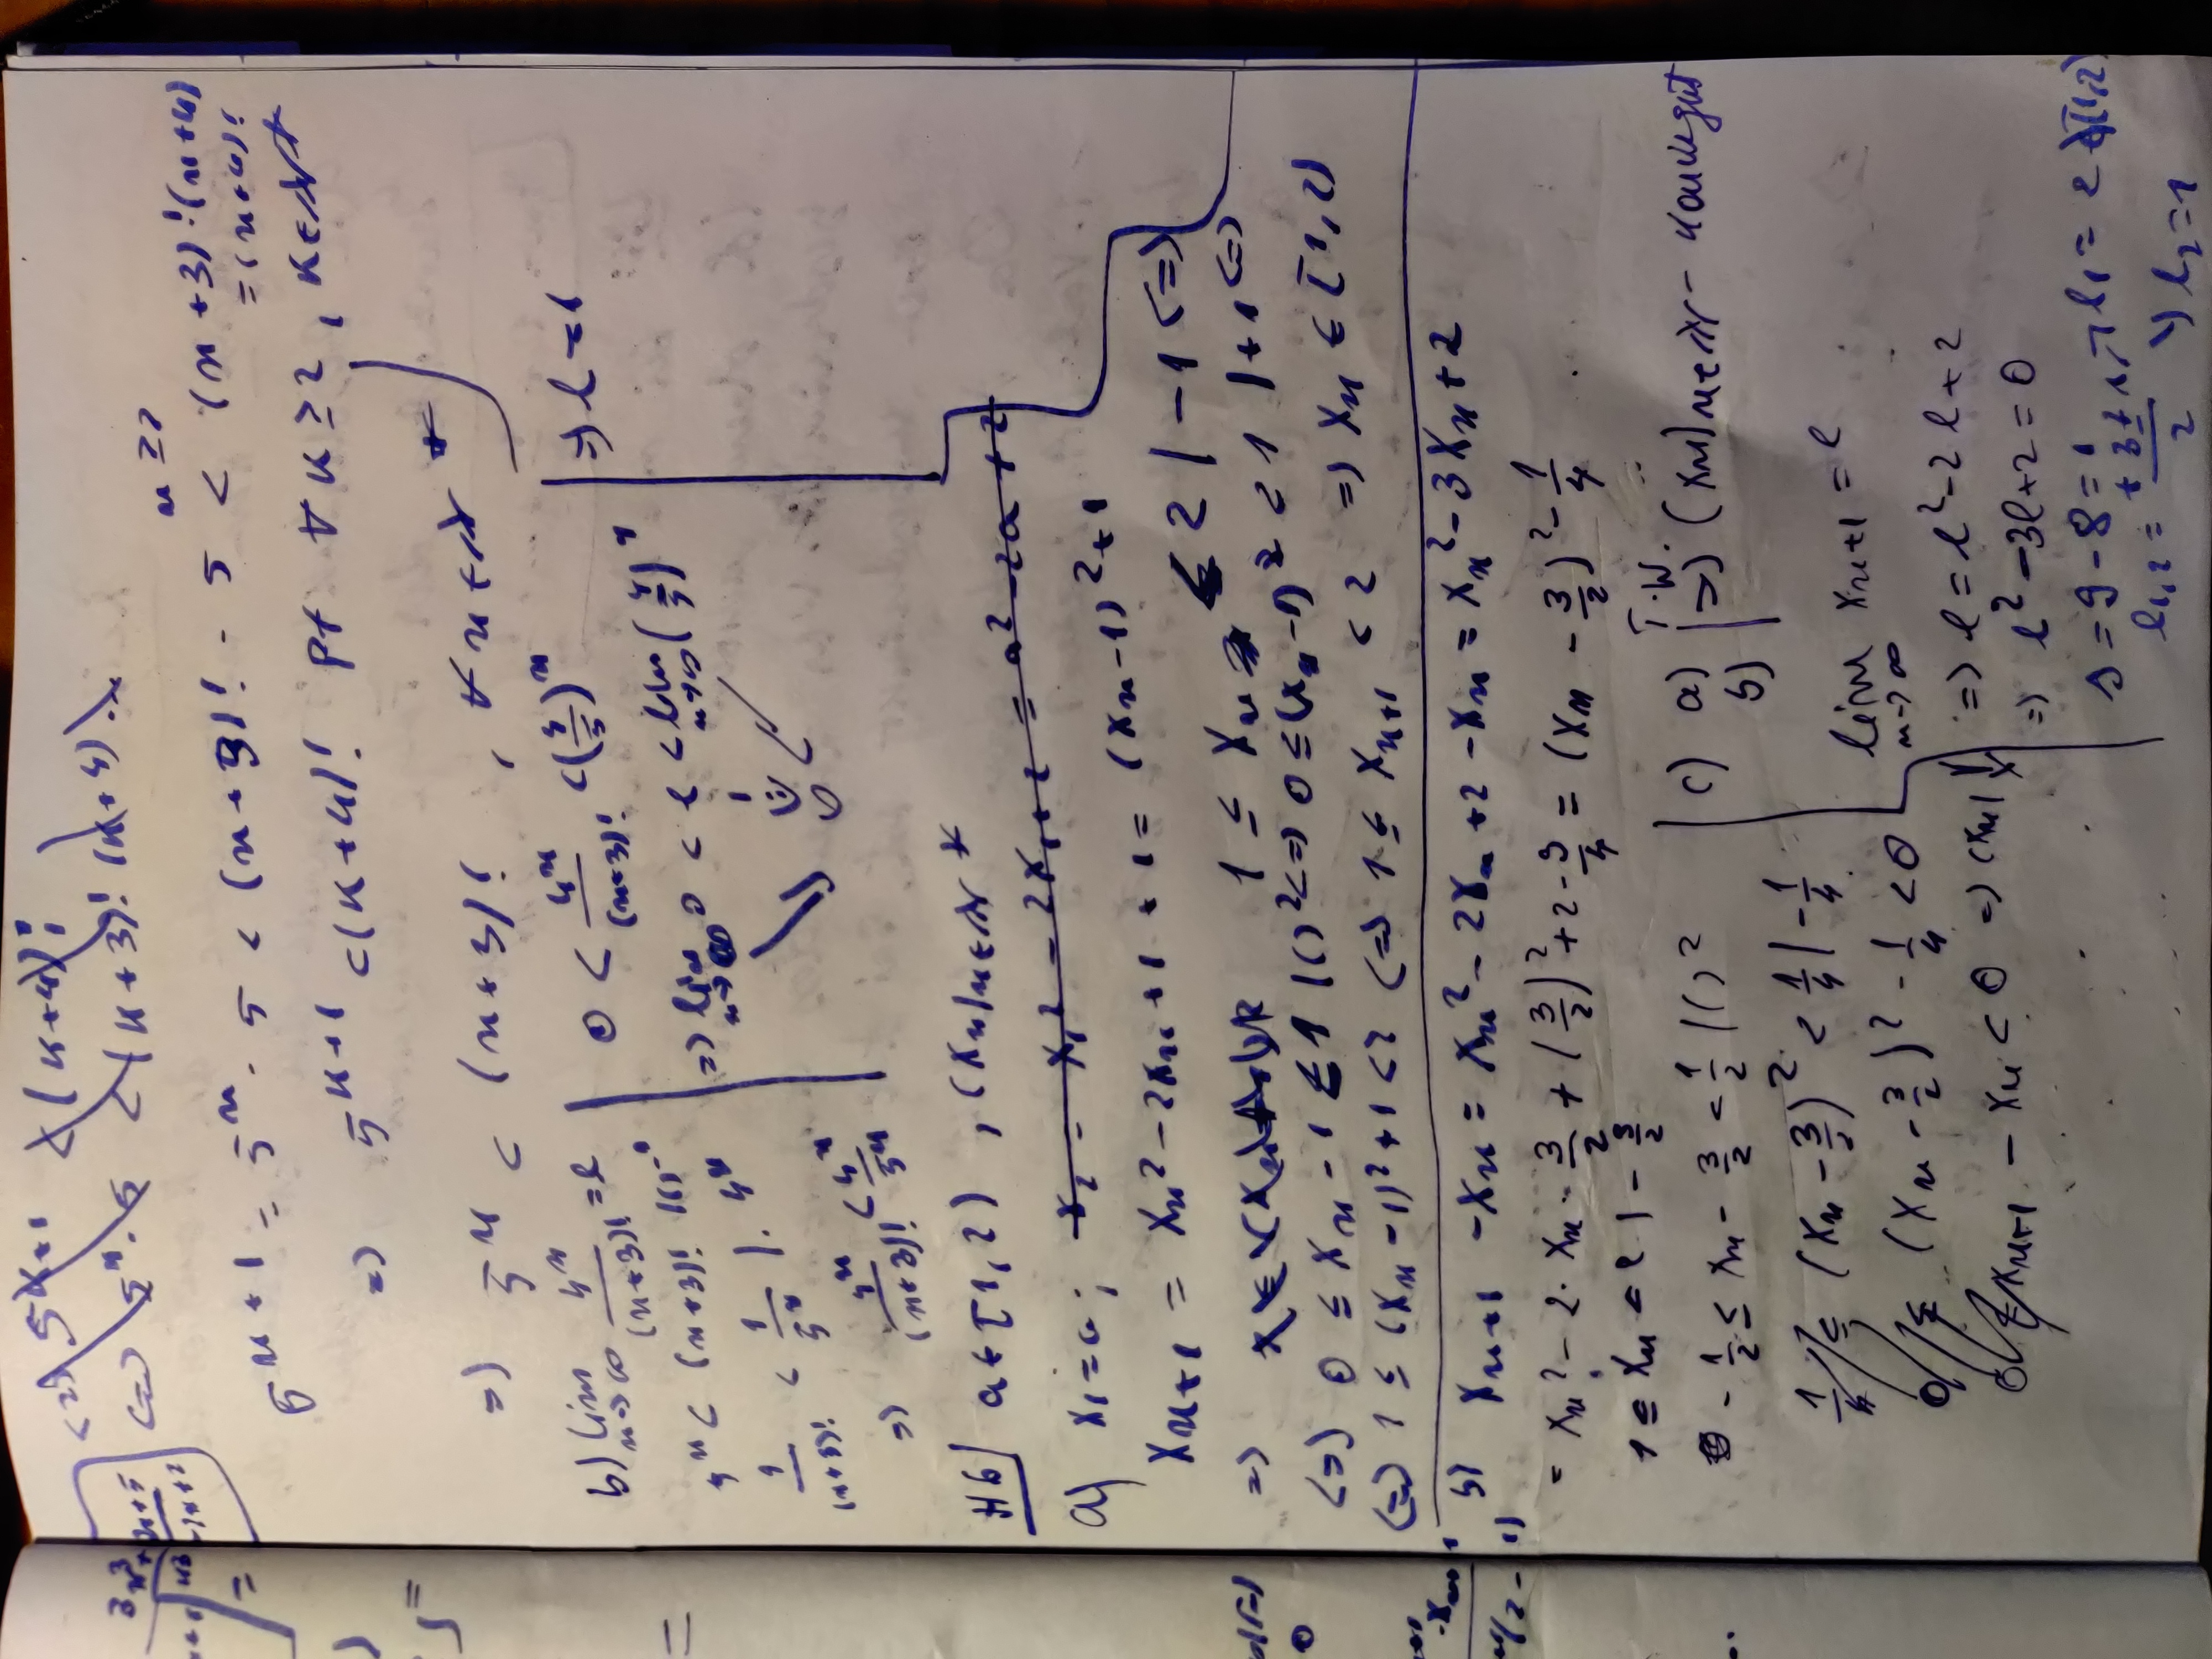 (=) 5^{k+1} < (k+4)!
(=) 5^n · 5 < (k+3)! (k+4)
n ≥ 2
5^{n+1} = 5^n · 5 < (n+3)! · 5 < (n+3)! (n+4)
= (n+4)!
=) 5^{k+1} < (k+4)! pt ∀ k ≥ 2, k ∈ ℕ*
=) 5^n < (n+3)! , ∀ n ∈ ℕ*
b) lim_{n→∞} 4^n/(n+3)! = l
5^n < (n+3)! |()^{-1}
1/(n+3)! < 1/5^n | · 4^n
=) 4^n/(n+3)! < 4^n/5^n
0 < 4^n/(n+3)! < (4/5)^n
=) lim_{n→∞} 0 < l < lim_{n→∞} (4/5)^n
0
=) l = 1
H6) a ∈ [1,2) , (x_n)_{n∈ℕ*}
a) x_1 = a ; x_2 = x_1^2 - 2x_1 + 2 = a^2 - 2a + 2
x_{n+1} = x_n^2 - 2x_n + 1 + 1 = (x_n - 1)^2 + 1
=) 1 ≤ x_n < 2 | -1 (=)
(=) 0 ≤ x_n - 1 < 1 |()^2 (=) 0 ≤ (x_n - 1)^2 < 1 | +1 (=)
(=) 1 ≤ (x_n - 1)^2 + 1 < 2 (=) 1 ≤ x_{n+1} < 2 =) x_n ∈ [1,2)
b) x_{n+1} - x_n = x_n^2 - 2x_n + 2 - x_n = x_n^2 - 3x_n + 2
= x_n^2 - 2 · x_n · 3/2 + (3/2)^2 + 2 - 9/4 = (x_n - 3/2)^2 - 1/4
1 ≤ x_n < 2 | - 3/2
- 1/2 ≤ x_n - 3/2 < 1/2 |()^2
1/4 ≤ (x_n - 3/2)^2 < 1/4 | - 1/4
0 ≤ (x_n - 3/2)^2 - 1/4 < 0
0 ≤ x_{n+1} - x_n < 0 =) (x_n) ↓
c) a)
b) | T.W. =) (x_n)_{n∈ℕ} -
lim_{n→∞} x_{n+1} = l
=) l = l^2 - 2l + 2
=) l^2 - 3l + 2 = 0
Δ = 9 - 8 = 1
l_{1,2} = (+3 ± 1)/2 → l_1 = 2 ∉ [1,2)
↘ l_2 = 1